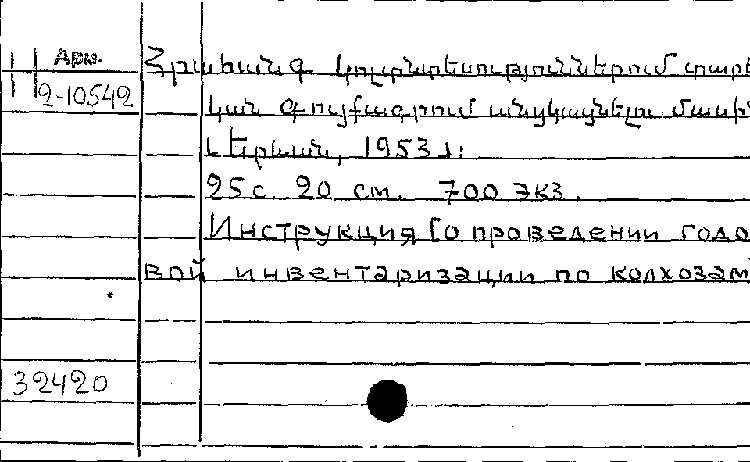 Арм.
2-10542
Հրահանգ կոլտնտեսություններում տարե
կան գույքագրում անցկացնելու մասին
Երևան, 1953 թ.
25 с. 20 см. 700 экз.
Инструкция [о проведении годо
вой инвентаризации по колхозам
32420